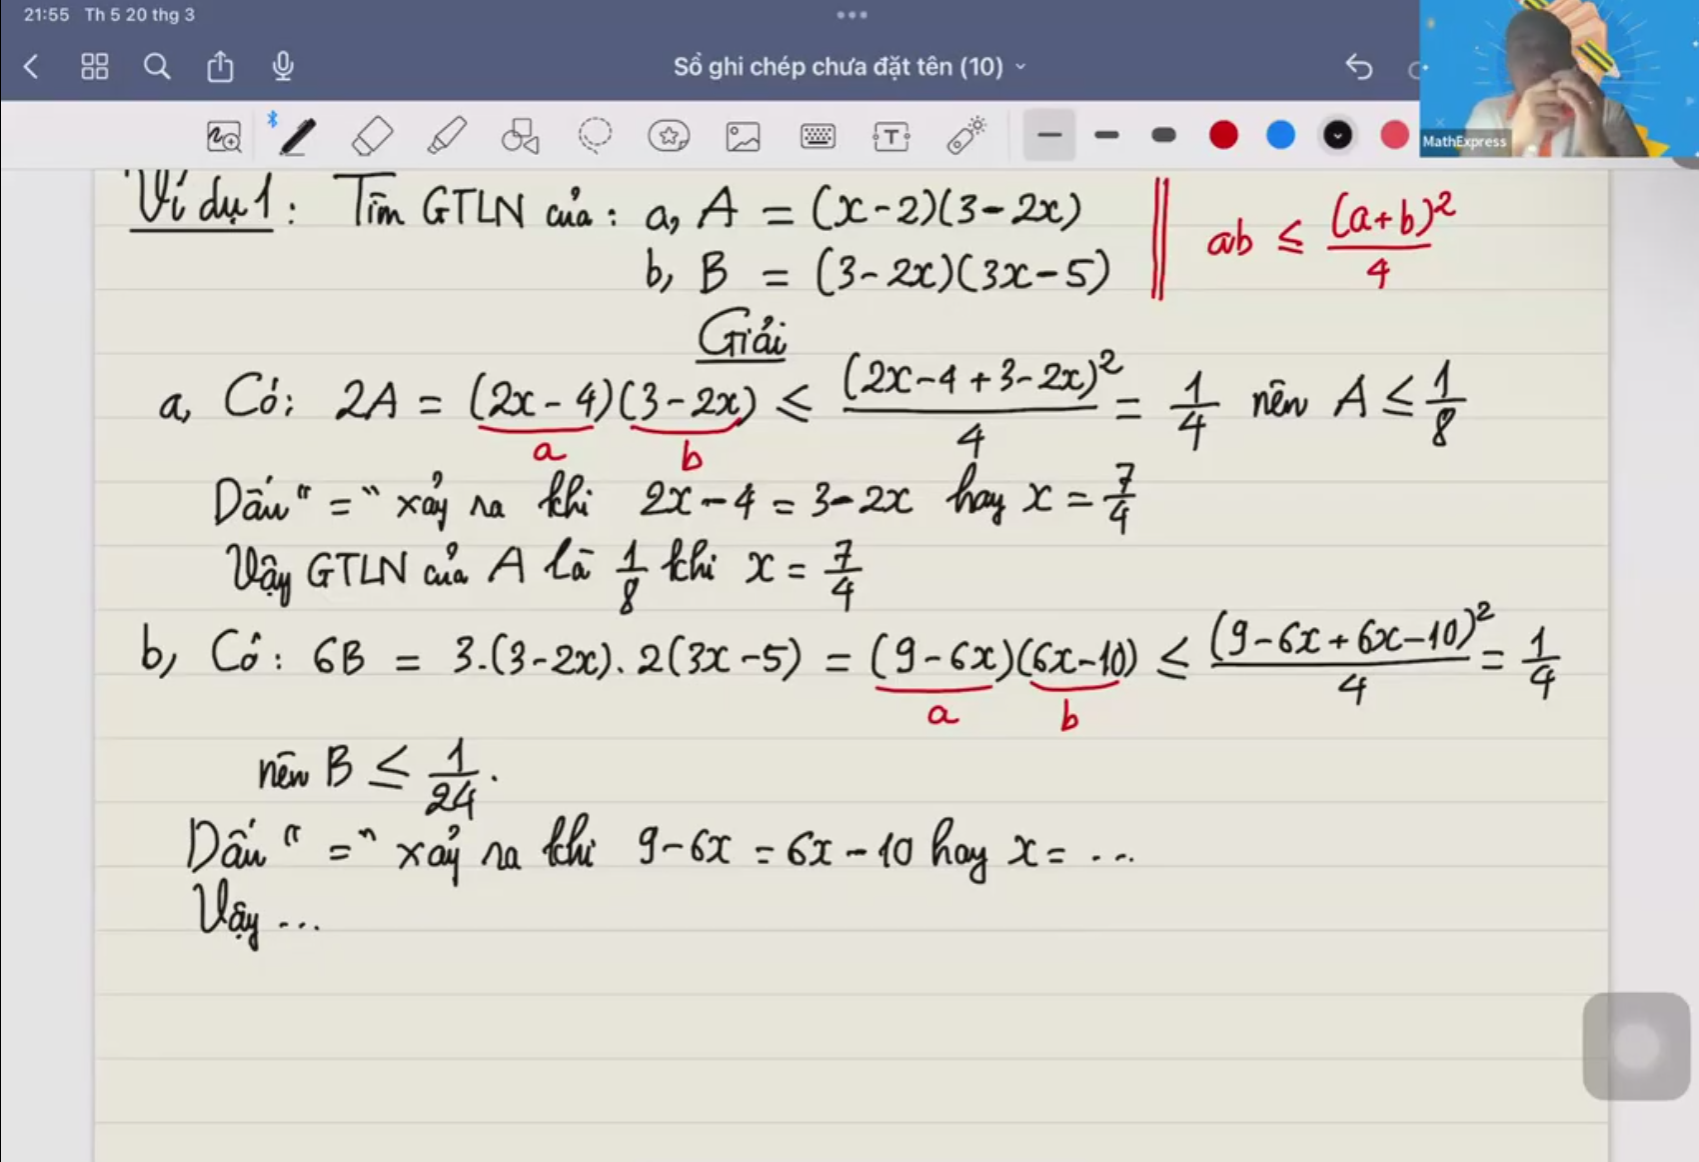 21:55 Th 5 20 thg 3
Sổ ghi chép chưa đặt tên (10)
MathExpress
Ví dụ 1: Tìm GTLN của: a, A = (x-2)(3-2x)
b, B = (3-2x)(3x-5)
ab ≤ (a+b)²/4
Giải
a, Có: 2A = (2x-4)(3-2x) ≤ (2x-4+3-2x)²/4 = 1/4 nên A ≤ 1/8
a b
Dấu "=" xảy ra khi 2x-4 = 3-2x hay x = 7/4
Vậy GTLN của A là 1/8 khi x = 7/4
b, Có: 6B = 3.(3-2x).2(3x-5) = (9-6x)(6x-10) ≤ (9-6x+6x-10)²/4 = 1/4
a b
nên B ≤ 1/24.
Dấu "=" xảy ra khi 9-6x = 6x-10 hay x = ...
Vậy ...